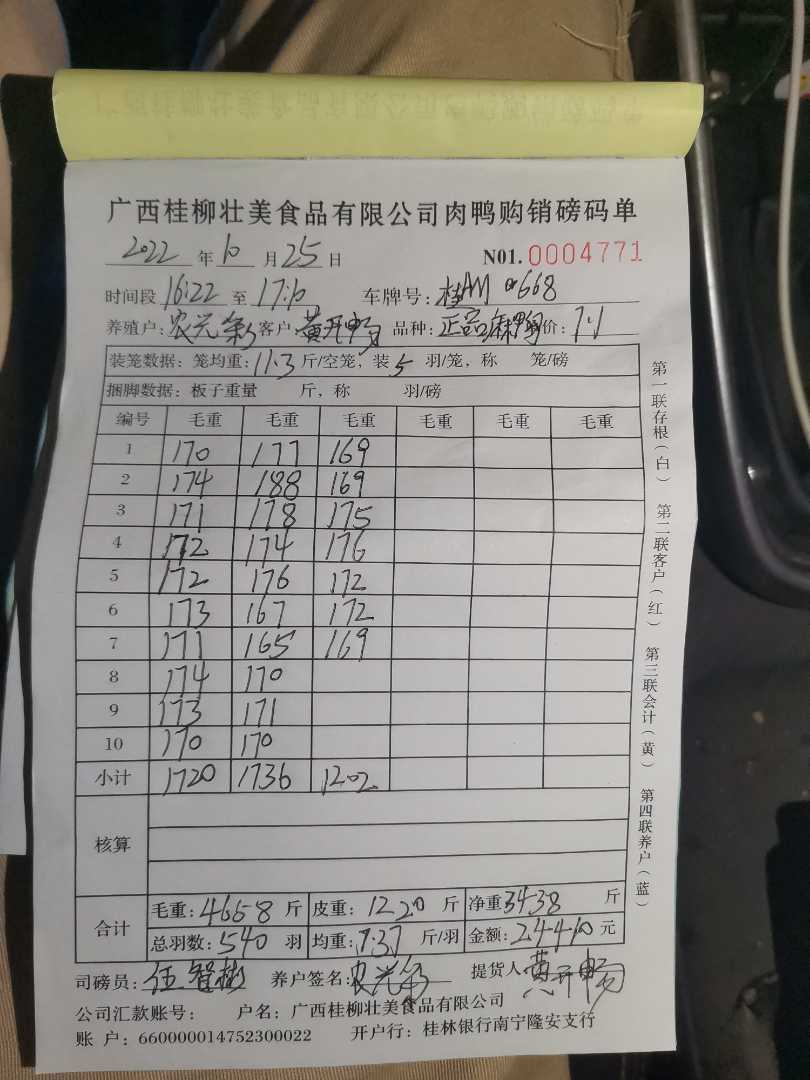 广西桂柳壮美食品有限公司肉鸭购销磅码单
2022 年 10 月 25 日 N01. 0004771
时间段 16:22 至 17:10 车牌号: 桂AM 668
养殖户: 农光 客户: 黄开畅 品种: 正品麻鸭 价: 7.1
装笼数据: 笼均重: 11.3 斤/空笼, 装 5 羽/笼, 称 笼/磅
捆脚数据: 板子重量 斤, 称 羽/磅
编号 毛重 毛重 毛重 毛重 毛重 毛重
1 170 177 169
2 174 188 169
3 171 178 175
4 172 174 176
5 172 176 172
6 173 167 172
7 171 165 169
8 174 170
9 173 171
10 170 170
小计 1720 1736 1202
核算
合计
毛重: 4658 斤 皮重: 1220 斤 净重 3438 斤
总羽数: 540 羽 均重: 7.37 斤/羽 金额: 24410 元
司磅员: 伍智彬 养户签名: 农光 提货人 黄开畅
公司汇款账号: 户名: 广西桂柳壮美食品有限公司
账 户: 660000014752300022 开户行: 桂林银行南宁隆安支行
第一联存根(白) 第二联客户(红) 第三联会计(黄) 第四联养户(蓝)